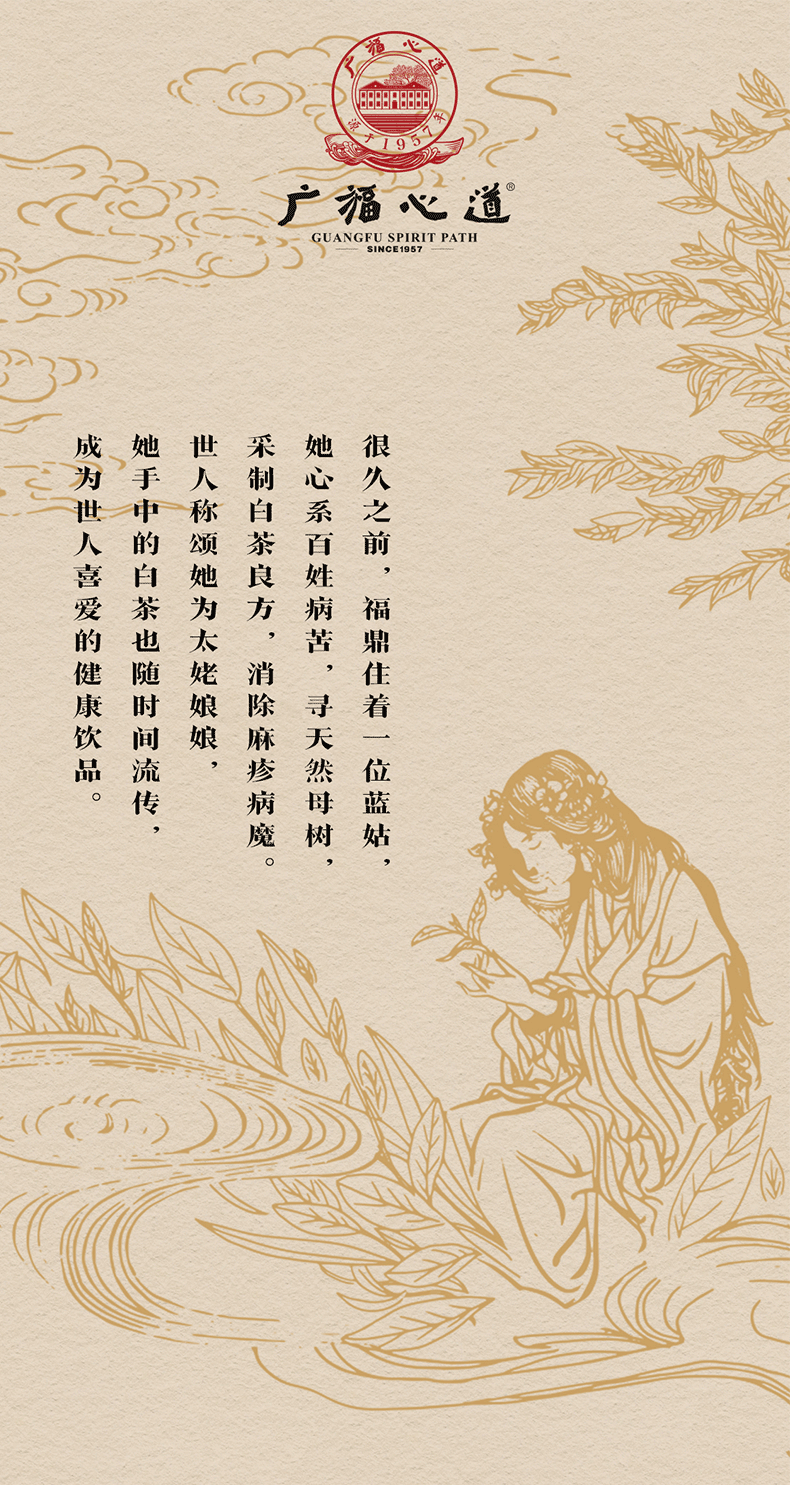 广福心道
源于1957年
广福心道®
GUANGFU SPIRIT PATH
SINCE1957
很久之前，福鼎住着一位蓝姑，
她心系百姓病苦，寻天然母树，
采制白茶良方，消除麻疹病魔。
世人称颂她为太姥娘娘，
她手中的白茶也随时间流传，
成为世人喜爱的健康饮品。